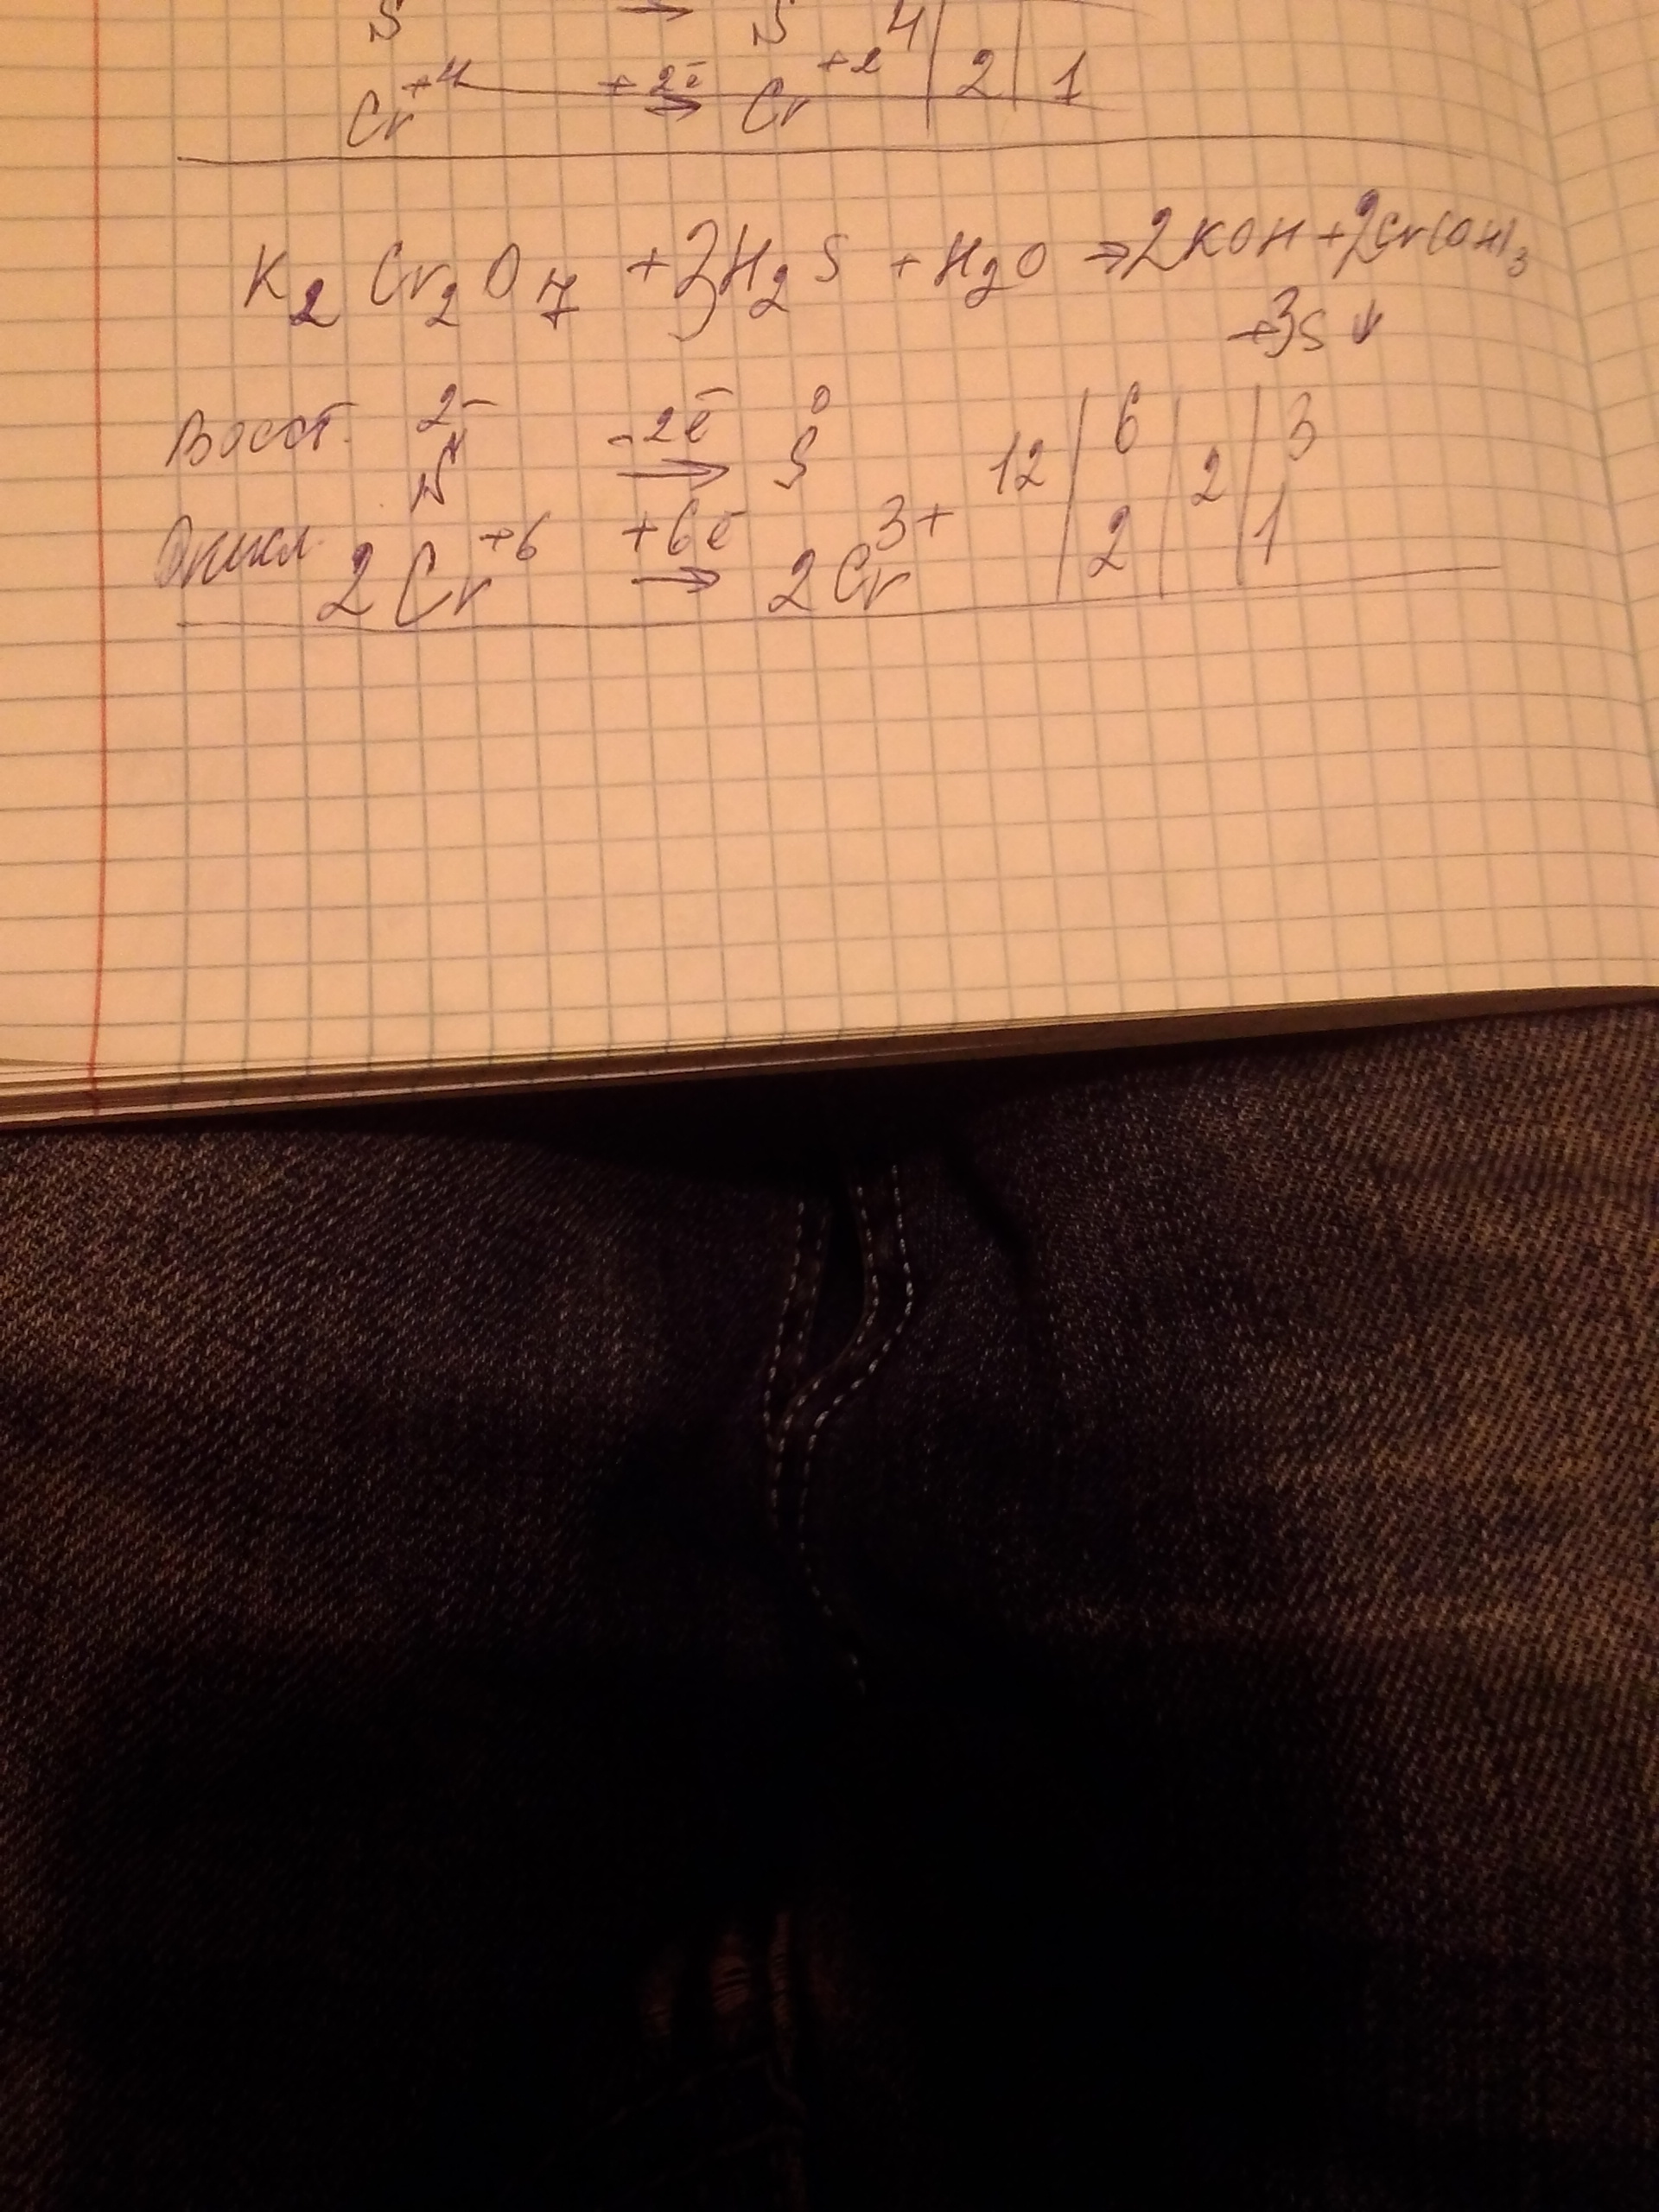 S → S 4
Cr⁺⁴ +2ē → Cr⁺² | 2 | 1
K₂Cr₂O₇ + 3H₂S + H₂O → 2KOH + 2Cr(OH)₃
+3S ↓
Восст. S²⁻ -2ē → S⁰ 12 | 6 | 2 | 3
Окисл. 2Cr⁺⁶ +6ē → 2Cr³⁺ | 2 | | 1